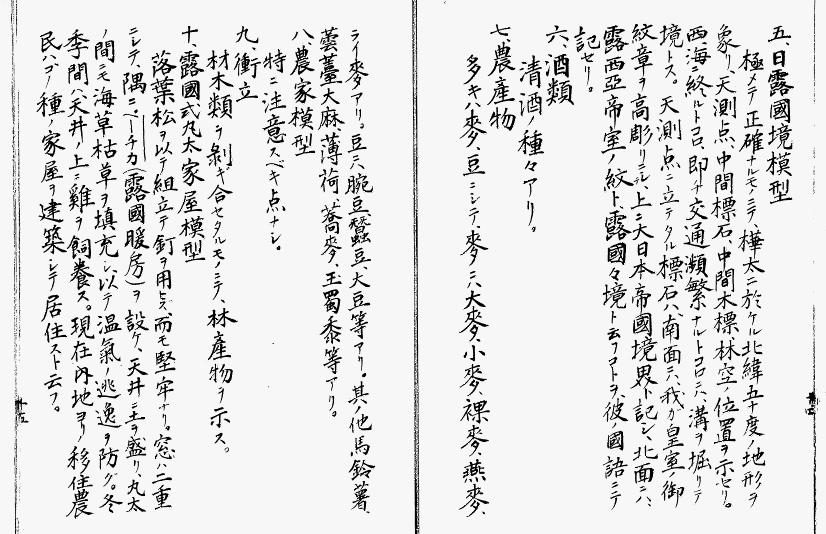 五、日露國境模型
極メテ正確ナルモノニテ樺太ニ於ケル北緯五十度ノ地形ヲ
象リ、天測点、中間標石、中間木標、林空ノ位置ヲ示セリ。
西海ニ終ルトコロ、即チ交通頻繁ナルトコロニハ、溝ヲ堀リテ
境トス。天測点ニ立テタル標石ハ、南面ニハ、我ガ皇室ノ御
紋章ヲ高彫リニシ、上ニ大日本帝國境界ト記シ、北面ニハ、
露西亞帝室ノ紋ト、露國々境ト云フコトヲ、彼ノ國語ニテ
記セリ。
六、酒類
清酒ノ種々アリ。
七、農産物
多キハ麥、豆ニシテ、麥ニハ大麥、小麥、裸麥、燕麥、
ライ麥アリ。豆ニハ、腕豆、蠶豆、大豆等アリ。其ノ他馬鈴薯、
蕓薹、大麻、薄荷、蕎麥、玉蜀黍等アリ。
八、農家模型
特ニ注意スベキ点ナシ。
九、衝立
材木類ヲ剝ギ合セタルモノニテ、林産物ヲ示ス。
十、露國式丸太家屋模型
落葉松ヲ以テ組立テ釘ヲ用ヒズ、而モ堅牢ナリ。窓ハ二重
ニシテ、隅ニペーチカ(露國暖房)ヲ設ケ、天井ニ土ヲ盛リ、丸太
ノ間ニモ海草枯草ヲ填充シ、以テ温氣ノ逃逸ヲ防グ。冬
季間ハ天井ノ上ニ雞ヲ飼養ス。現在内地ヨリノ移住農
民ハ、コノ種ノ家屋ヲ建築シテ居住スト云フ。